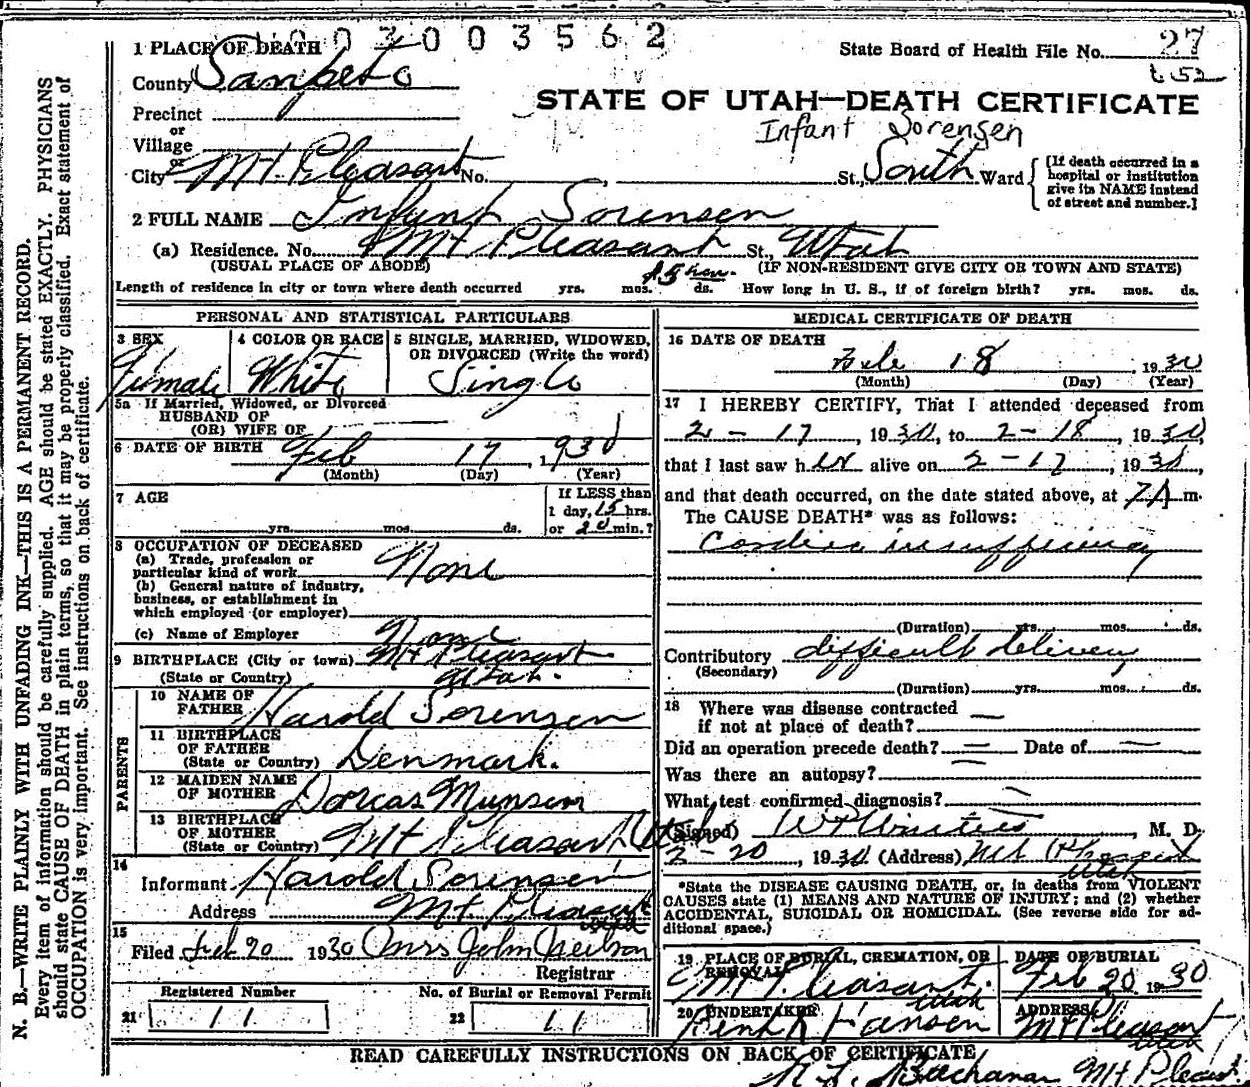 003003562
1 PLACE OF DEATH State Board of Health File No. 27
County Sanpete
Precinct
or
Village
or
City Mt. Pleasant No. St., South Ward
STATE OF UTAH—DEATH CERTIFICATE
Infant Sorensen
[If death occurred in a
hospital or institution
give its NAME instead
of street and number.]
2 FULL NAME Infant Sorensen
(a) Residence. No. Mt Pleasant St., Utah
(USUAL PLACE OF ABODE) (IF NON-RESIDENT GIVE CITY OR TOWN AND STATE)
Length of residence in city or town where death occurred yrs. mos. ds. How long in U. S., if of foreign birth? yrs. mos. ds.
PERSONAL AND STATISTICAL PARTICULARS
3 SEX 4 COLOR OR RACE 5 SINGLE, MARRIED, WIDOWED,
OR DIVORCED (Write the word)
Female White Single
5a If Married, Widowed, or Divorced
HUSBAND OF
(OR) WIFE OF
6 DATE OF BIRTH Feb 17 1930
(Month) (Day) (Year)
7 AGE yrs. mos. ds.
If LESS than
1 day, 15 hrs.
or 20 min.?
8 OCCUPATION OF DECEASED
(a) Trade, profession or
particular kind of work None
(b) General nature of industry,
business, or establishment in
which employed (or employer)
(c) Name of Employer None
9 BIRTHPLACE (City or town) Mt Pleasant
(State or Country) Utah.
PARENTS
10 NAME OF
FATHER Harold Sorensen
11 BIRTHPLACE
OF FATHER
(State or Country) Denmark.
12 MAIDEN NAME
OF MOTHER Dorcas Munson
13 BIRTHPLACE
OF MOTHER
(State or Country) Mt Pleasant Utah
14
Informant Harold Sorensen
Address Mt Pleasant
Utah
15
Filed Feb 20 1930 Mrs John Neilson
Registrar
Registered Number
21 11
No. of Burial or Removal Permit
22 11
MEDICAL CERTIFICATE OF DEATH
16 DATE OF DEATH
Feb 18, 1930
(Month) (Day) (Year)
17 I HEREBY CERTIFY, That I attended deceased from
2-17, 1930, to 2-18, 1930,
that I last saw her alive on 2-17, 1930,
and that death occurred, on the date stated above, at 7A m.
The CAUSE DEATH* was as follows:
Cardiac insufficiency
(Duration) yrs. mos. ds.
Contributory difficult delivery
(Secondary)
(Duration) yrs. mos. ds.
18 Where was disease contracted
if not at place of death? —
Did an operation precede death? — Date of —
Was there an autopsy?
What test confirmed diagnosis? —
(Signed) , M. D.
2-20, 1930 (Address) Mt Pleasant
Utah
*State the DISEASE CAUSING DEATH, or, in deaths from VIOLENT
CAUSES state (1) MEANS AND NATURE OF INJURY; and (2) whether
ACCIDENTAL, SUICIDAL OR HOMICIDAL. (See reverse side for ad-
ditional space.)
19 PLACE OF BURIAL, CREMATION, OR
REMOVAL
Mt Pleasant.
Utah
DATE OF BURIAL
Feb 20 1930
20 UNDERTAKER
Hansen
ADDRESS
Mt Pleasant
Utah
READ CAREFULLY INSTRUCTIONS ON BACK OF CERTIFICATE
Buchanan Mt Pleasant
N. B.—WRITE PLAINLY WITH UNFADING INK—THIS IS A PERMANENT RECORD.
Every item of information should be carefully supplied. AGE should be stated EXACTLY. PHYSICIANS
should state CAUSE OF DEATH in plain terms, so that it may be properly classified. Exact statement of
OCCUPATION is very important. See instructions on back of certificate.